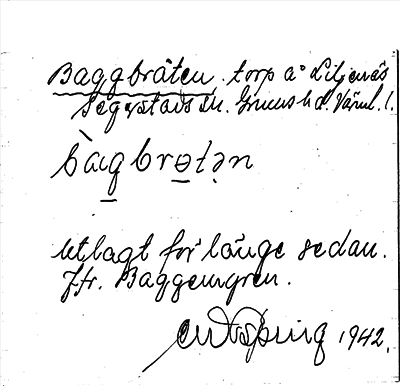 Baggbråten. torp å Liljenäs
Segerstads sn. Grums hd. Värml. l.
bag brətən
utlagt för länge sedan.
Jfr. Baggemyren.
1942.